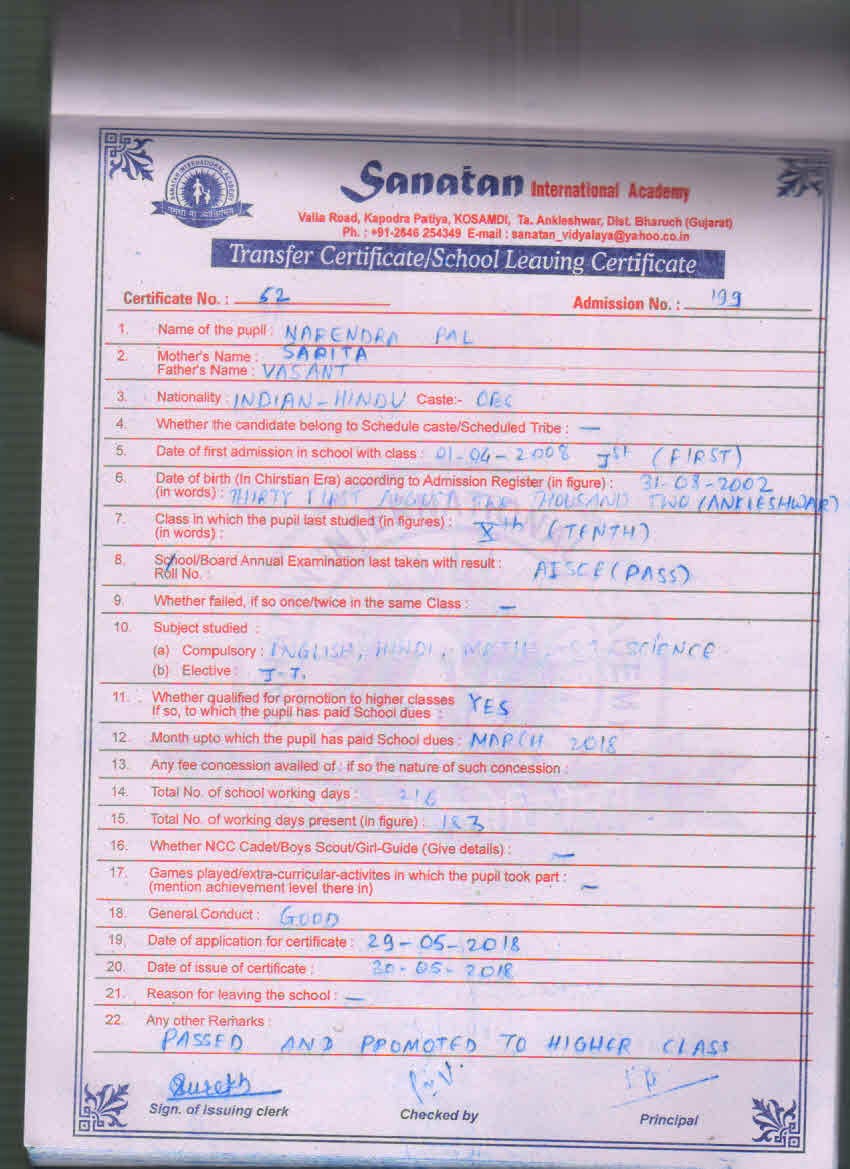 SANATAN INTERNATIONAL ACADEMY
Sanatan International Academy
Valia Road, Kapodra Patiya, KOSAMDI, Ta. Ankleshwar, Dist. Bharuch (Gujarat)
Ph. : +91-2646 254349 E-mail : sanatan_vidyalaya@yahoo.co.in
Transfer Certificate/School Leaving Certificate
Certificate No. : 52 Admission No. : 199
1. Name of the pupil : NARENDRA PAL
2. Mother's Name : SARITA
Father's Name : VASANT
3. Nationality : INDIAN - HINDU Caste:- OBC
4. Whether the candidate belong to Schedule caste/Scheduled Tribe : —
5. Date of first admission in school with class : 01-04-2008 Ist (FIRST)
6. Date of birth (In Chirstian Era) according to Admission Register (in figure) : 31-08-2002
(in words) : THIRTY FIRST AUGUST TWO THOUSAND TWO (ANKLESHWAR)
7. Class in which the pupil last studied (in figures) : Xth (TENTH)
(in words) :
8. School/Board Annual Examination last taken with result : AISCE (PASS)
Roll No. :
9. Whether failed, if so once/twice in the same Class : —
10. Subject studied :
(a) Compulsory : ENGLISH, HINDI, MATH, SCIENCE
(b) Elective : I.T.
11. Whether qualified for promotion to higher classes YES
If so, to which the pupil has paid School dues :
12. Month upto which the pupil has paid School dues : MARCH 2018
13. Any fee concession availed of : if so the nature of such concession :
14. Total No. of school working days : 216
15. Total No. of working days present (in figure) : 183
16. Whether NCC Cadet/Boys Scout/Girl-Guide (Give details) : —
17. Games played/extra-curricular-activites in which the pupil took part : —
(mention achievement level there in)
18. General Conduct : GOOD
19. Date of application for certificate : 29-05-2018
20. Date of issue of certificate : 30-05-2018
21. Reason for leaving the school : —
22. Any other Remarks :
PASSED AND PROMOTED TO HIGHER CLASS
Suresh
Sign. of issuing clerk Checked by Principal